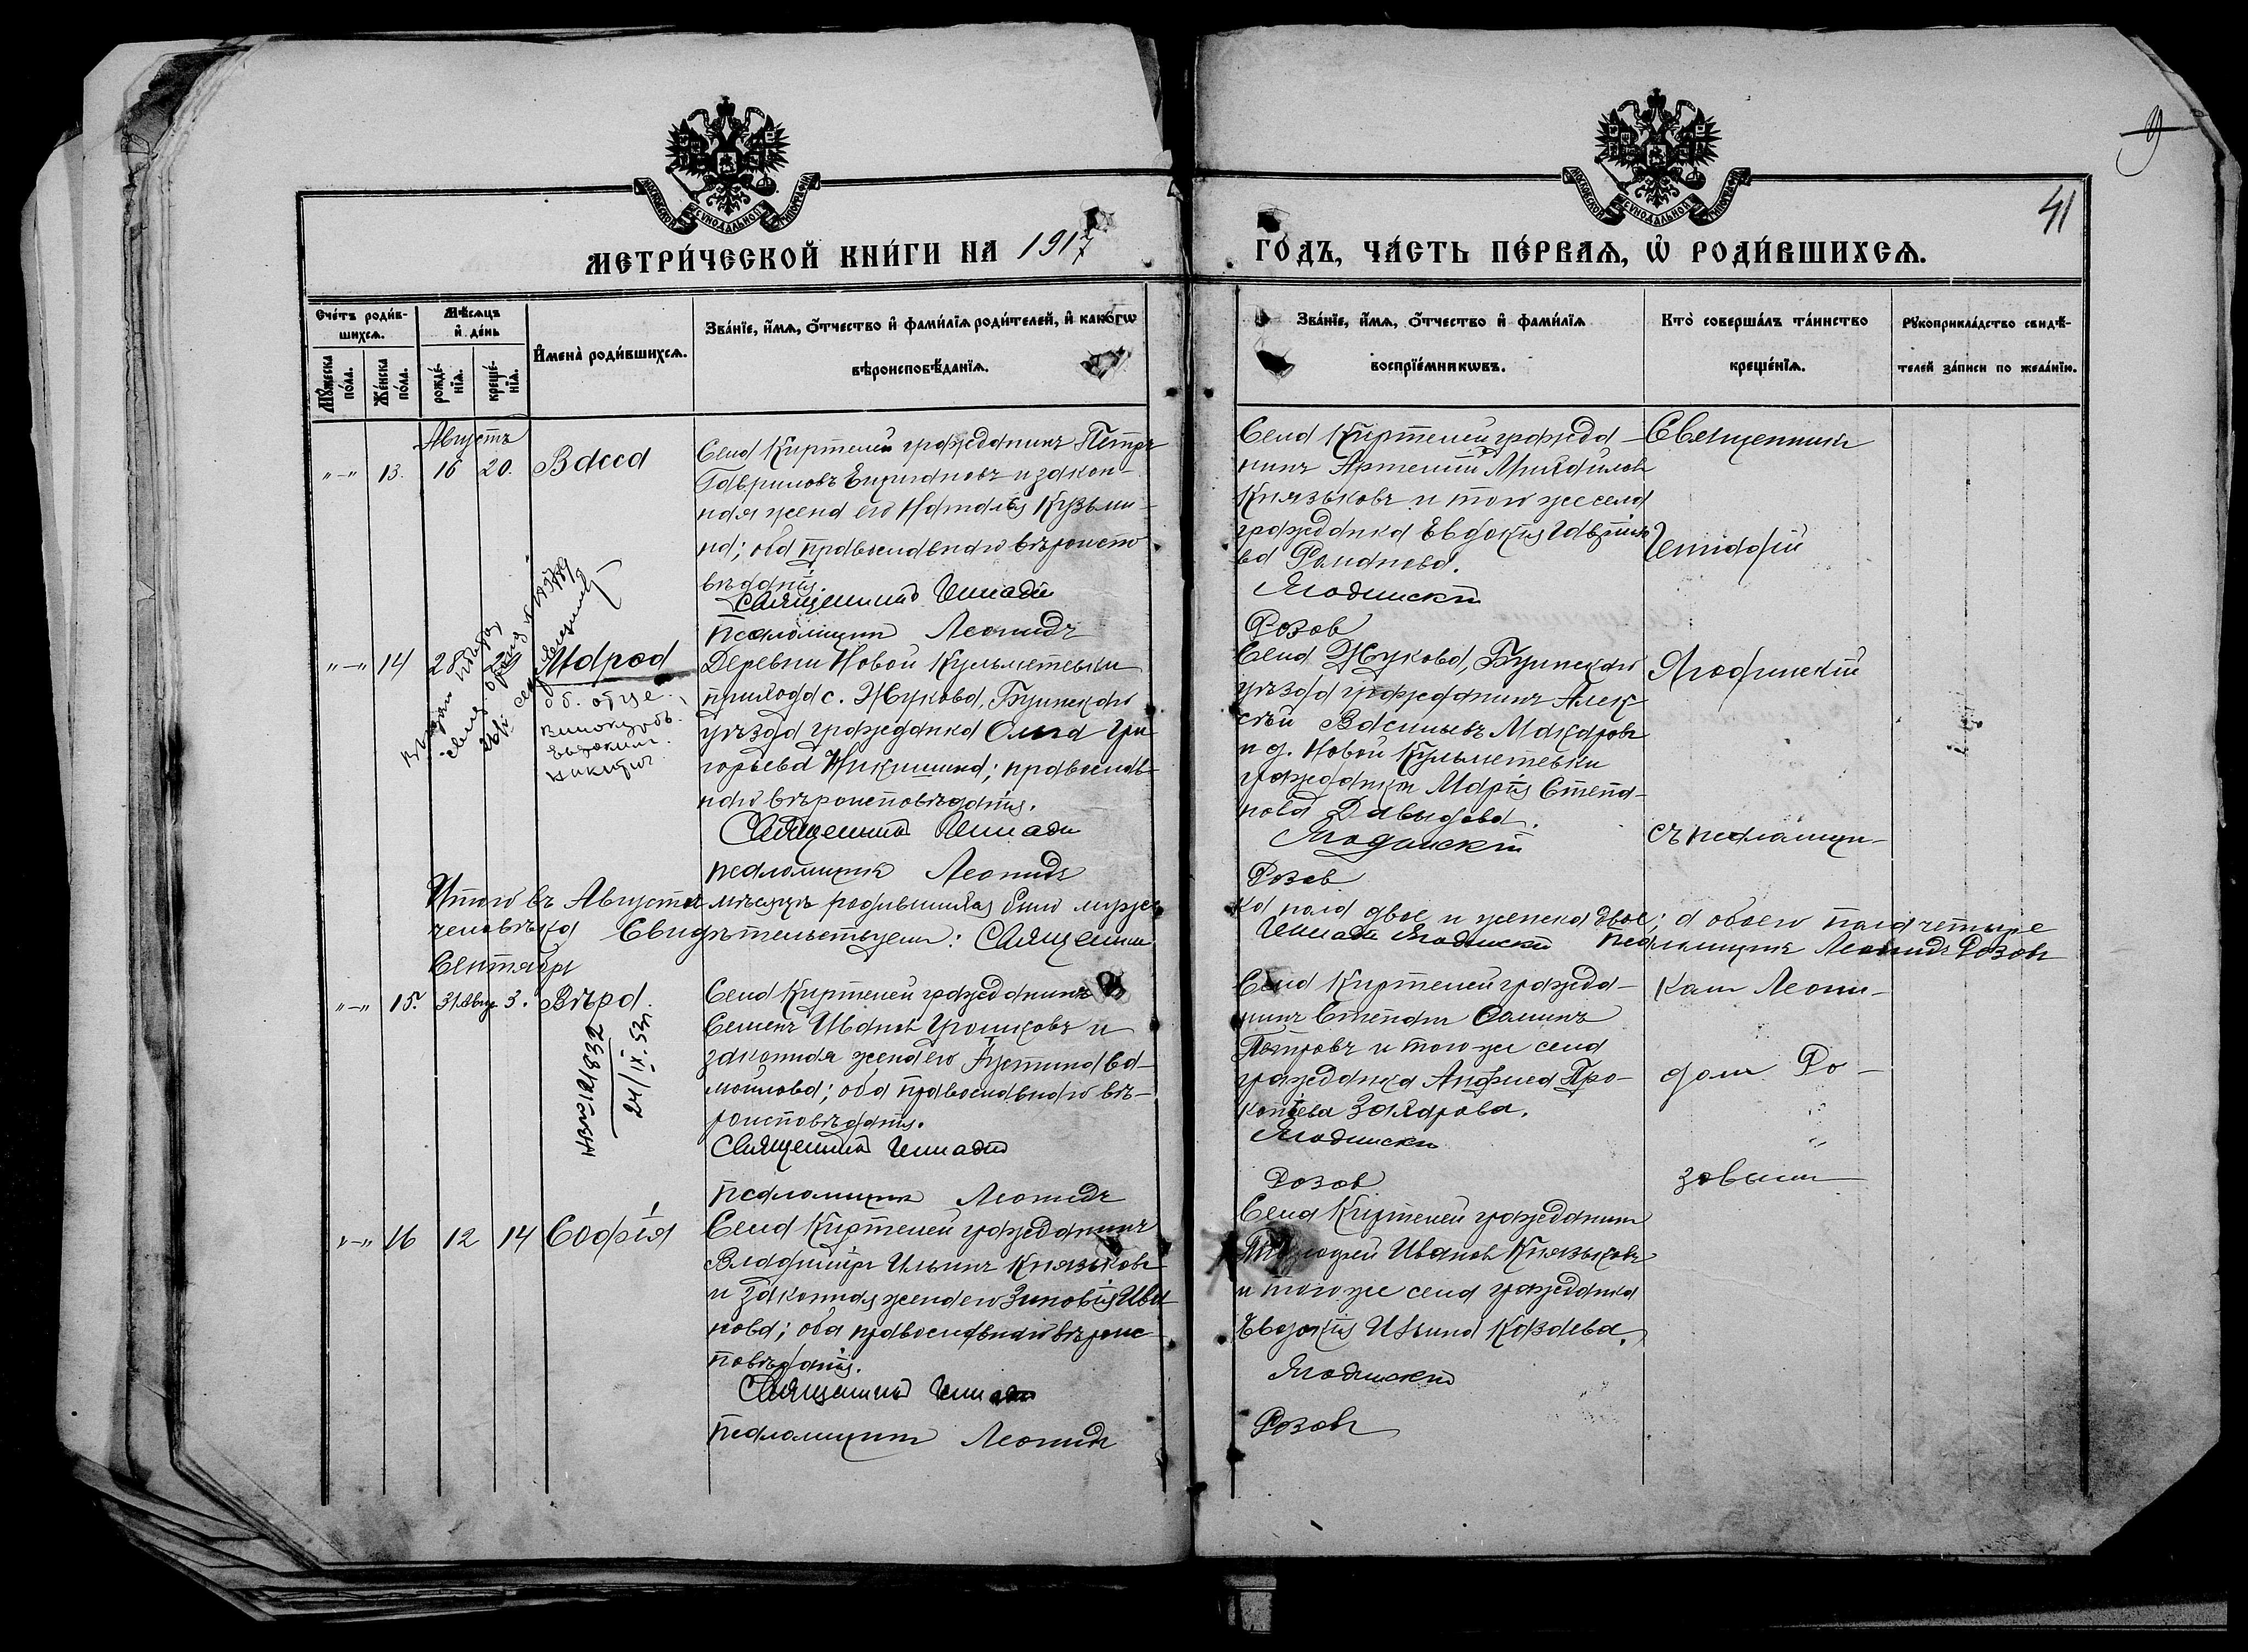 9
41
МОСКОВСКОЙ СѴНОДАЛЬНОЙ ТИПОГРАФІИ
МОСКОВСКОЙ СѴНОДАЛЬНОЙ ТИПОГРАФІИ
МЕТРИ́ЧЕСКОЙ КНИ́ГИ НА 1917 ГО́ДЪ, ЧА́СТЬ ПЕ́РВАѦ, Ѡ РОДИ́ВШИХСѦ.
Сче́тъ роди́в-
шихсѧ.
Мꙋ́жеска по́ла.
Же́нска по́ла.
Мѣ́сѧцъ
и҆ де́нь
рожде́-
нїѧ.
креще́-
нїѧ.
И҆мена̀ роди́вшихсѧ.
Зва́нїе, и҆́мѧ, ѻ҆́тчество и҆ фами́лїѧ роди́телей, и҆ како́гѡ
вѣроисповѣ́данїѧ.
Зва́нїе, и҆́мѧ, ѻ҆́тчество и҆ фами́лїѧ
воспрїе́мникѡвъ.
Кто̀ соверша́лъ та́инство
креще́нїѧ.
Рꙋкоприкла́дство свидѣ́-
телей за́писи по жела́нїю.
Августъ
"-" 13. 16 20. Васса
Села Киртелей гражданинъ Петръ
Гавриловъ и закон-
ная жена его Наталія Кузьми-
на; оба православнаго вѣроиспо
вѣданія.
Священникъ Генадій
Псаломщикъ Леонидъ
Села Киртелей гражда-
нинъ Артемій Михайловъ
Князьковъ и того же села
гражданка Евдокія Гаврило
ва
Ягодинскій
Розов
Священникъ
Генадій
"-" 14 28
Марфа
об. отце
Винокуровъ
Евдоким.
Никитич.
Деревни Новой Кульметевки
прихода с. Жукова, Буинскаго
уѣзда гражданка Ольга Гри
горьева Никишина; православ-
наго вѣроисповѣданія.
Священникъ Генадій
псаломщикъ Леонидъ
Села Жукова, Буинскаго
уѣзда гражданинъ Алек
сѣй Васильевъ Макаровъ
и д. Новой Кульметевки
гражданка Марія Степа-
нова Давыдова.
Ягодинскій
Розов
Ягодинскій
съ псаломщи-
Итого въ Августѣ мѣсяцѣ родившихся было мужес
ка пола двое и женска двое; а обоего пола четыре
человѣка Свидѣтельствуемъ: Священникъ
Генадій Ягодинскій Псаломщикъ Леонидъ Розовъ
Сентябрь
"-" 15. 31 Авг. 3. Вѣра.
24/IX.53г
Села Киртелей гражданинъ
Семенъ Ивановъ и
законная жена его Устина Са-
мойлова; оба православнаго вѣ-
роисповѣданія.
Священникъ Генадій
псаломщикъ Леонидъ
Села Киртелей гражда-
нинъ Степанъ
Петровъ и того же села
гражданка Анфиса Про-
копіева Захарова.
Ягодинскій
Розов
комъ Леони-
домъ Ро-
зовымъ
"-" 16 12 14 Софія
Села Киртелей гражданинъ
Владиміръ Ильинъ Князьковъ
и законная жена его Зиновія Ива
нова; оба православнаго вѣроис-
повѣданія.
Священникъ Генадій
Псаломщикъ Леонидъ
Села Киртелей гражданинъ
Тимофей Ивановъ Князьковъ
и того же села гражданка
Евдокія Ильина
Ягодинскій
Розовъ